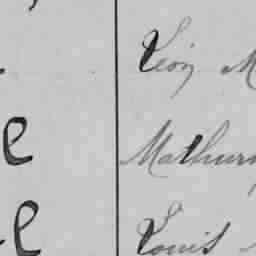 Léon M
e Mathurin
e Louis